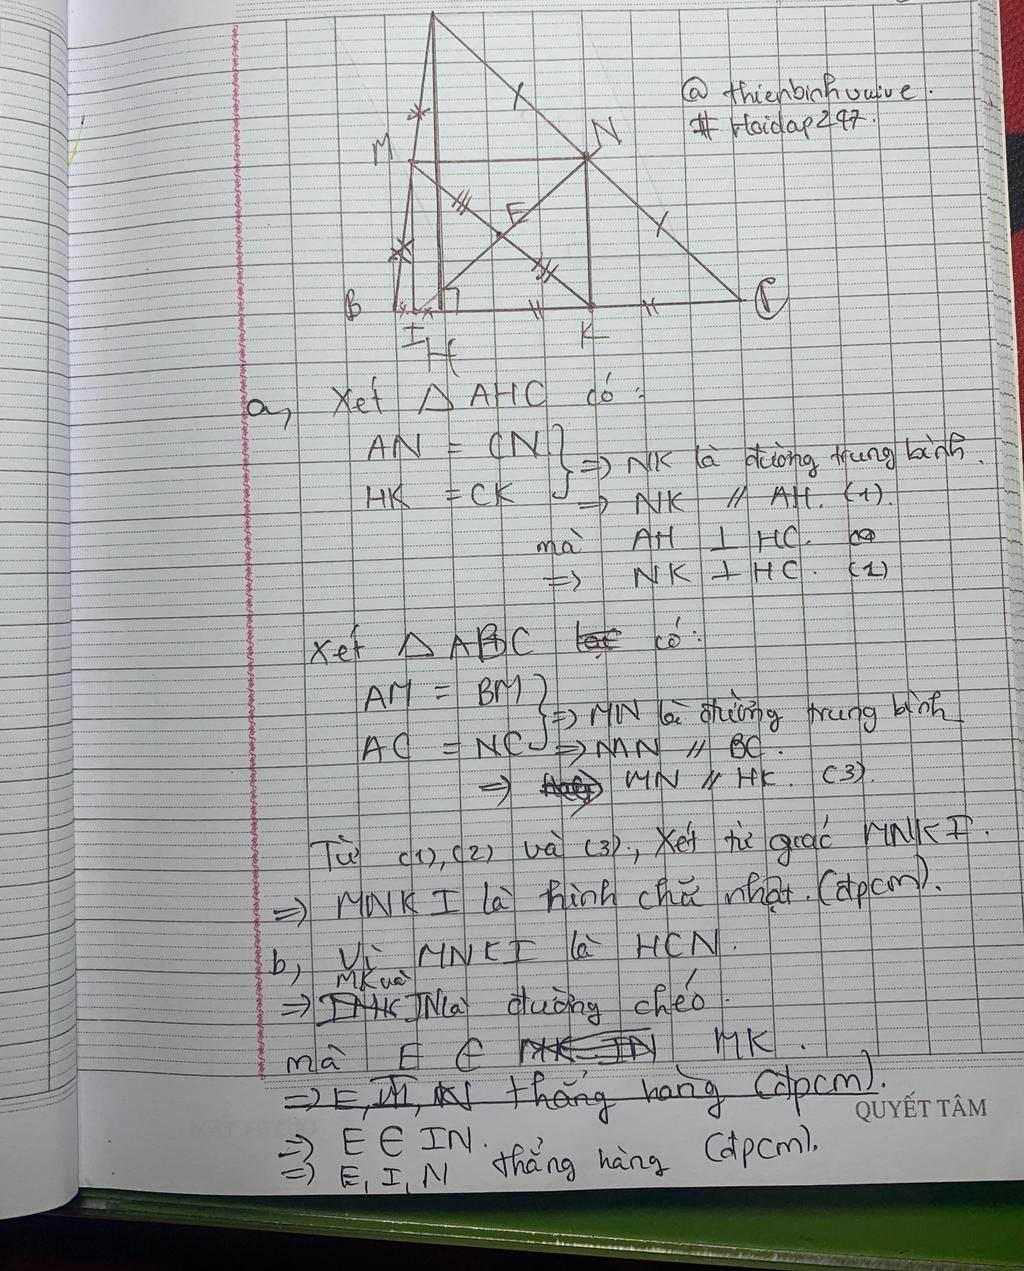 @ thienbinhvuive.
# Hoidap247.
M
N
E
B
I
H
K
C
a, Xét △ AHC có:
AN = CN } => NK là đường trung bình.
HK = CK => NK // AH. (1).
mà AH ⊥ HC.
=> NK ⊥ HC. (2)
Xét △ ABC có:
AM = BM } => MN là đường trung bình
AC = NC => MN // BC.
=> MN // HK. (3).
Từ (1), (2) và (3), Xét tứ giác MNKI.
=> MNKI là hình chữ nhật. (đpcm).
b, Vì MNKI là HCN.
MK và
=> IN là đường chéo.
mà E ∈ MK.
=> E, M, N thẳng hàng (đpcm).
=> E ∈ IN.
=> E, I, N thẳng hàng (đpcm).
QUYẾT TÂM